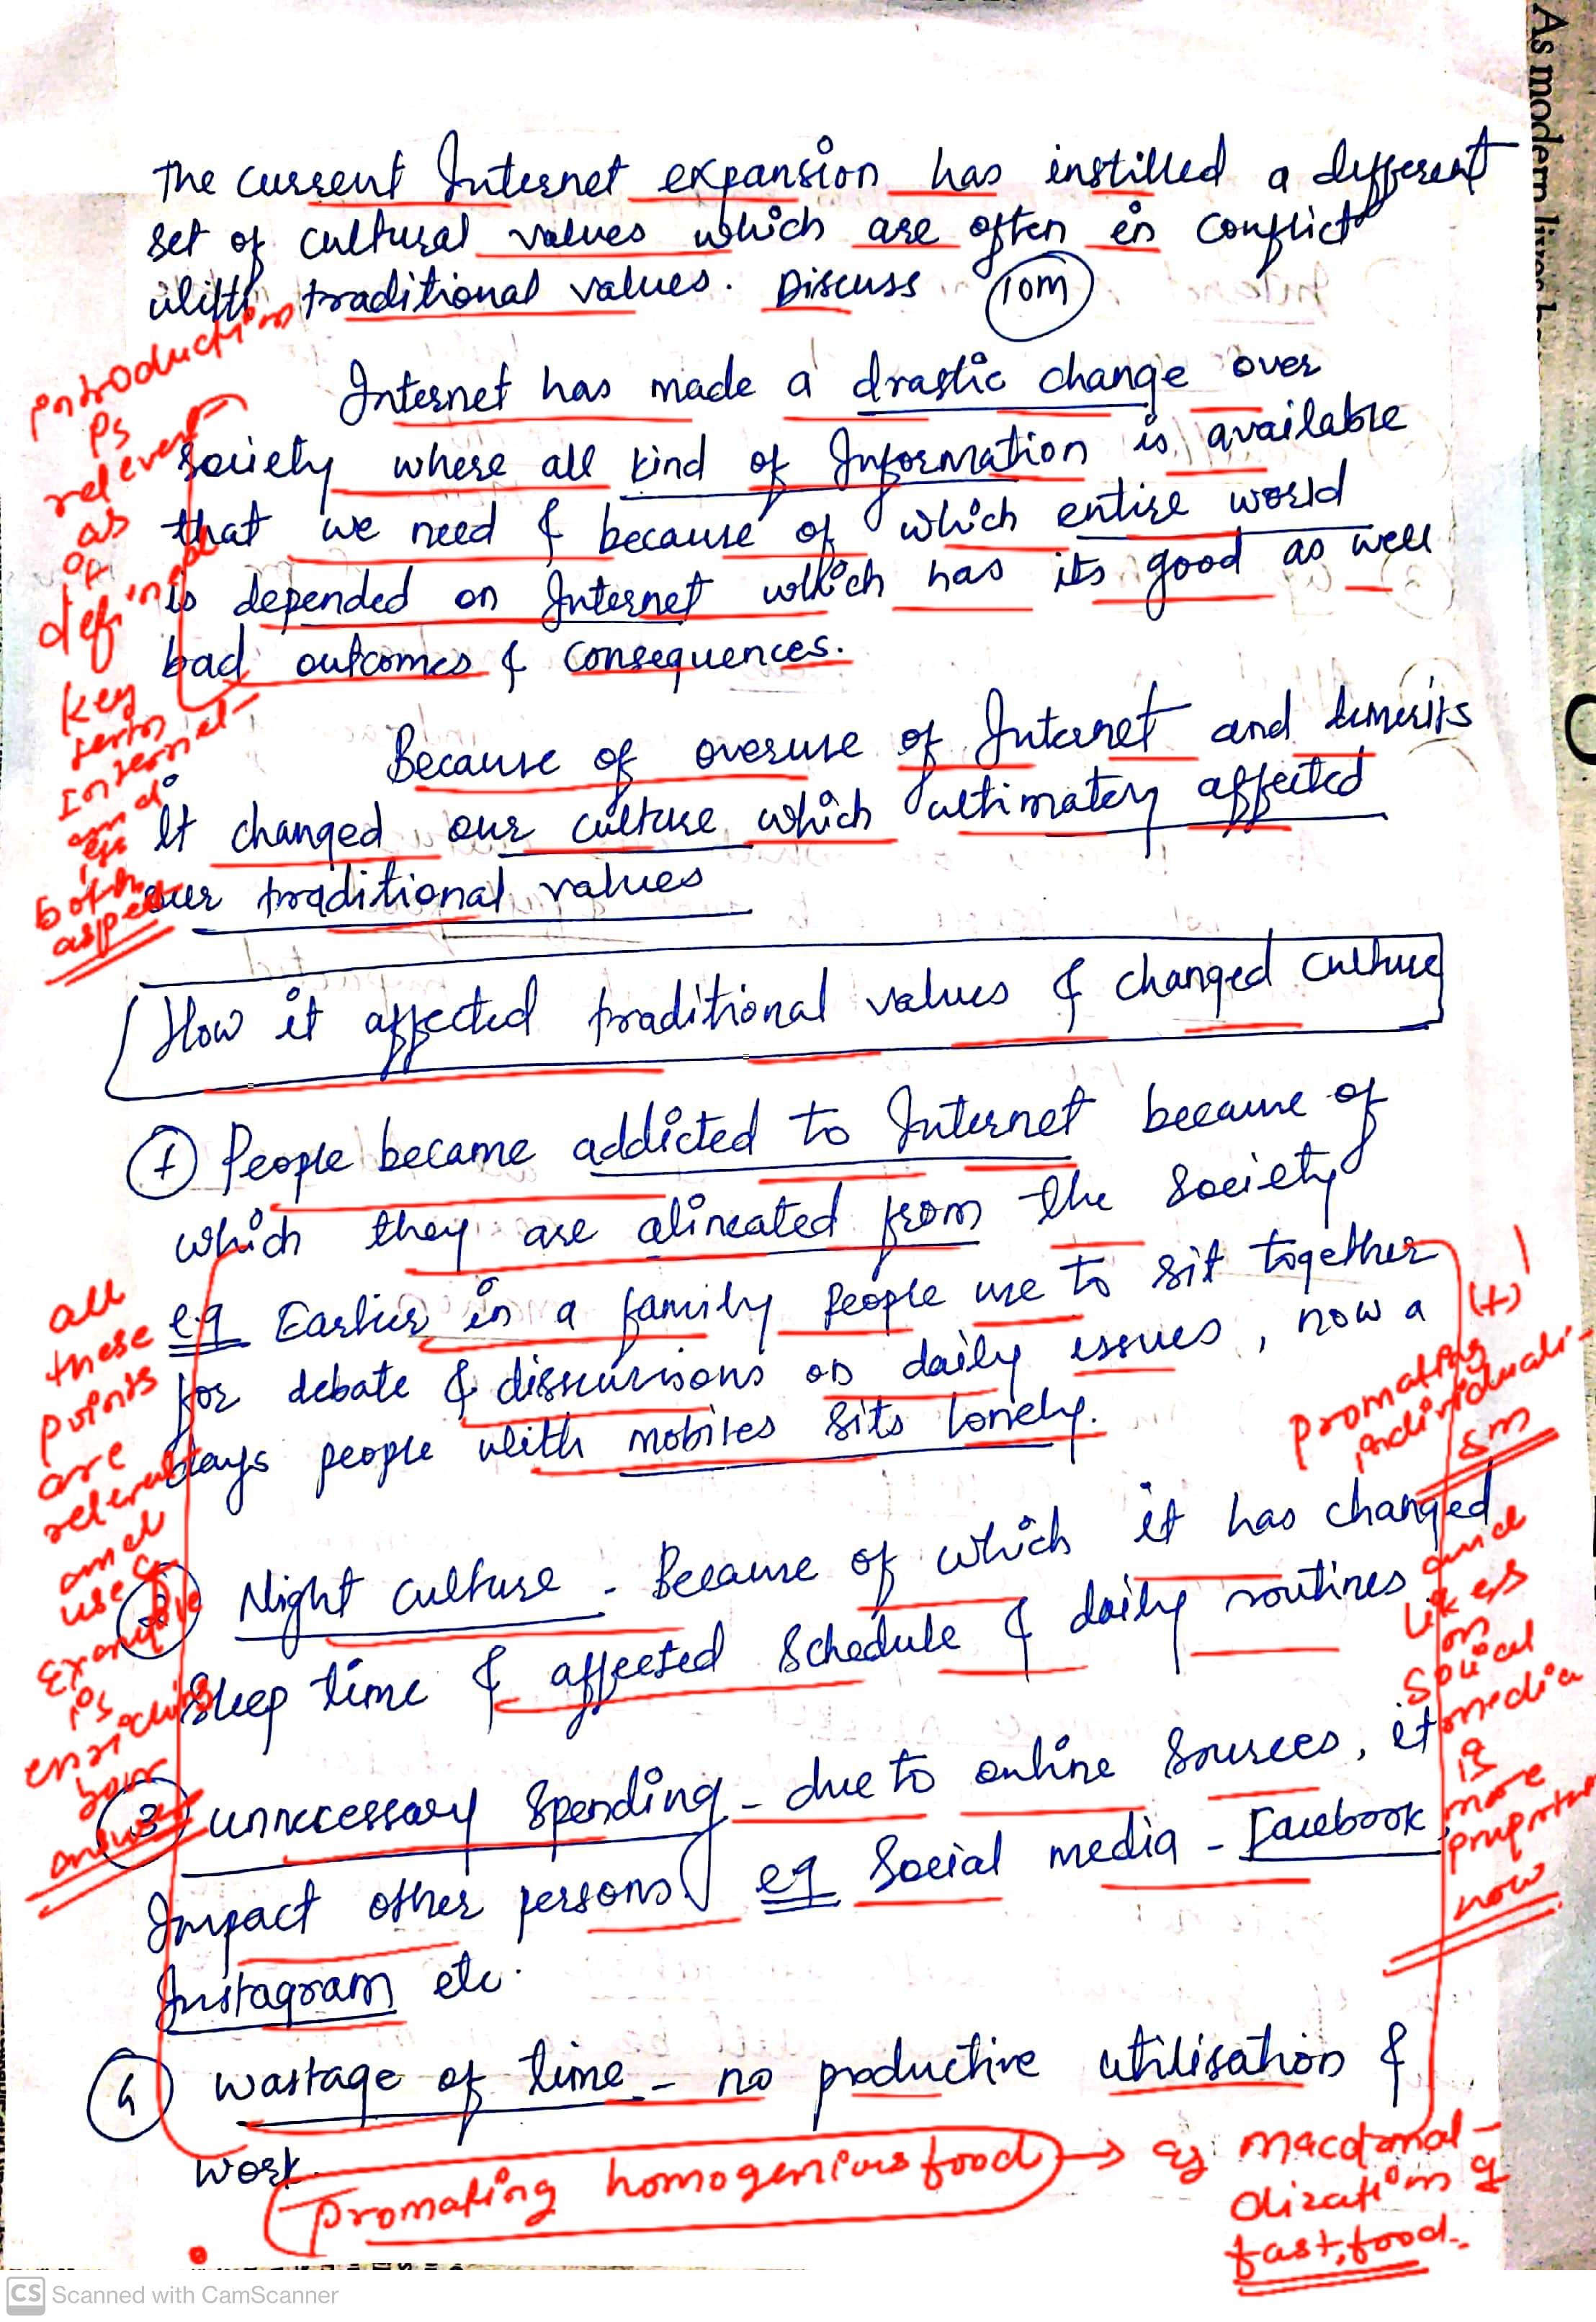 The current Internet expansion has instilled a different
set of cultural values which are often in conflict
with traditional values. Discuss 10m
Internet has made a drastic change over
society where all kind of Information is available
that we need & because of which entire world
is depended on Internet which has its good as well
bad outcomes & consequences.
introduction
is
relevant
as
of
defining
key
term
Internet
and
its
both
aspect
Because of overuse of Internet and demerits
It changed our culture which ultimately affected
our traditional values
How it affected traditional values & changed culture
1 People became addicted to Internet because of
which they are alineated from the society
eg Earlier in a family people use to sit together
for debate & discussions on daily issues, now a
days people with mobiles sits lonely.
(+)
promating
individuali-
sm
and
likes
on
social
media
is
more
now
2 Night culture - Because of which it has changed
sleep time & affected schedule & daily routines
3 unnecessary spending - due to online sources, it
Impact other persons eg Social media - Facebook,
Instagram etc.
4 wastage of time - no productive utilisation &
work.
all
these
points
are
relevant
and
use of
example
is
enriching
your
answer
promating homogenious food → eg macdonal-
dization of
fast food.
As modern lives
CS Scanned with CamScanner